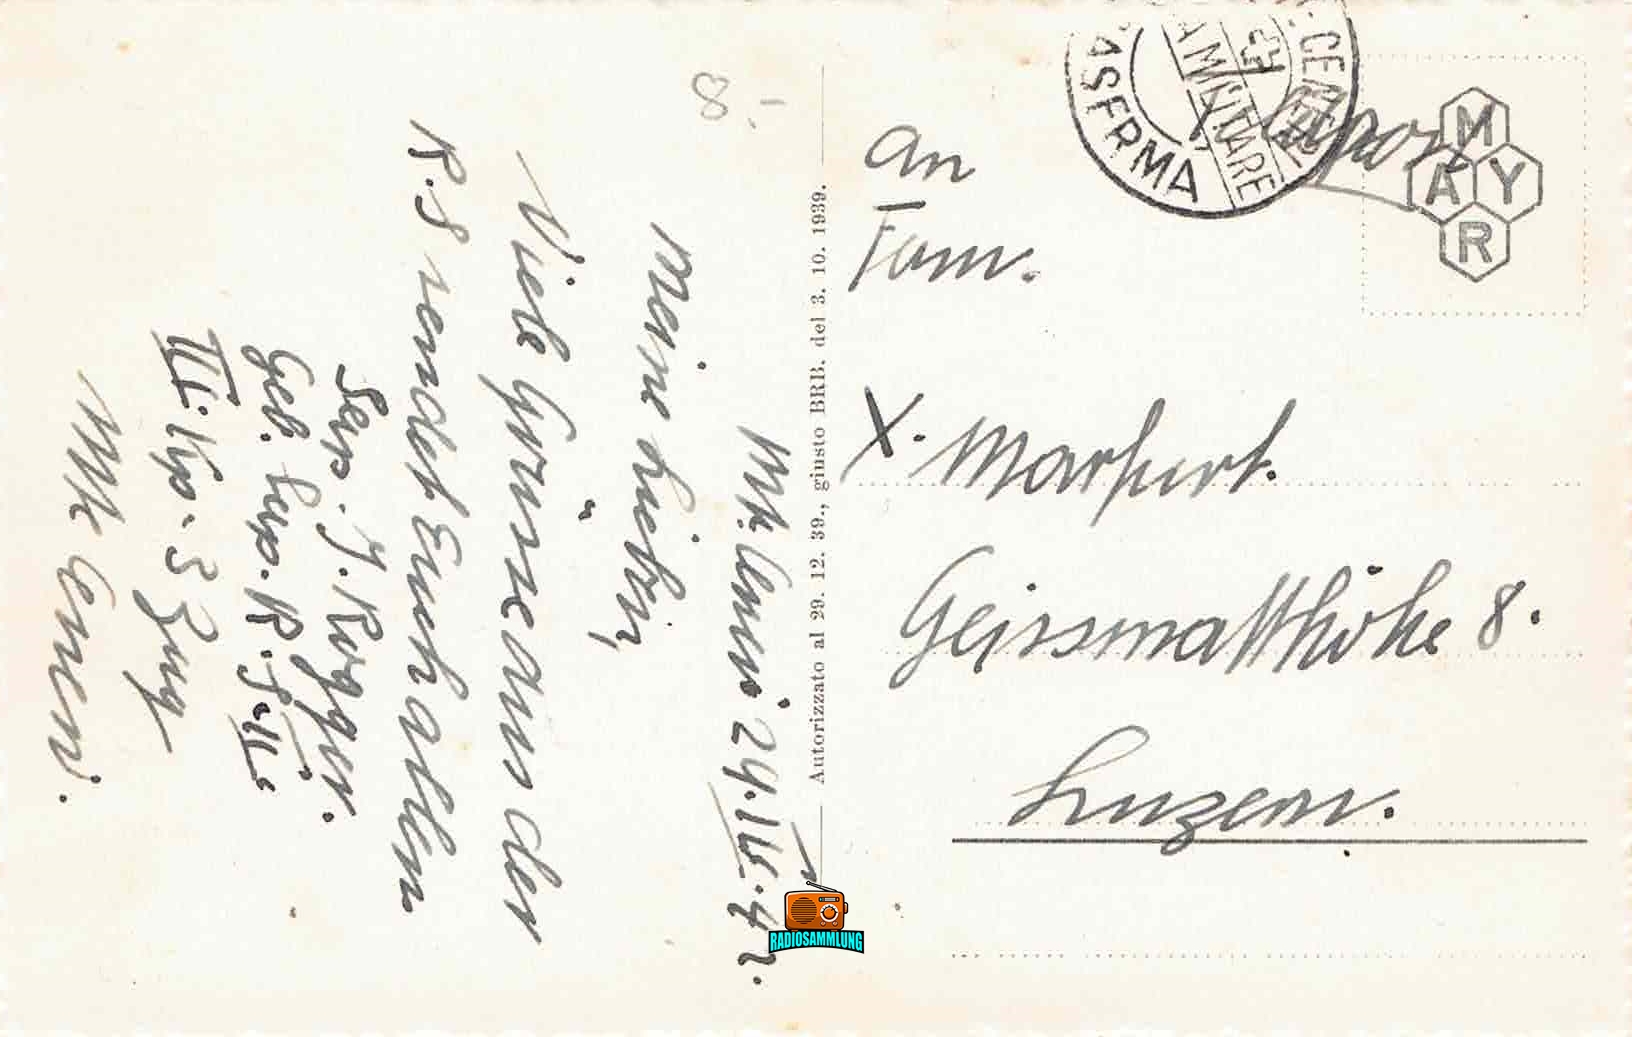 8.-
Mte Ceneri 24.IV.42.
Meine Lieben,
Viele Grüsse aus der
R.S sendet Euch allen
J. Rogger.
Geb.
III. Kp. 3 Zug
Mte Ceneri.
Autorizzato al 29. 12. 39., giusto BRB. del 3. 10. 1939.
An
Fam.
X. Marfurt.
Geissmatthöhe 8.
Luzern.
CASERMA
MILITARE
M
A Y
R
RADIOSAMMLUNG